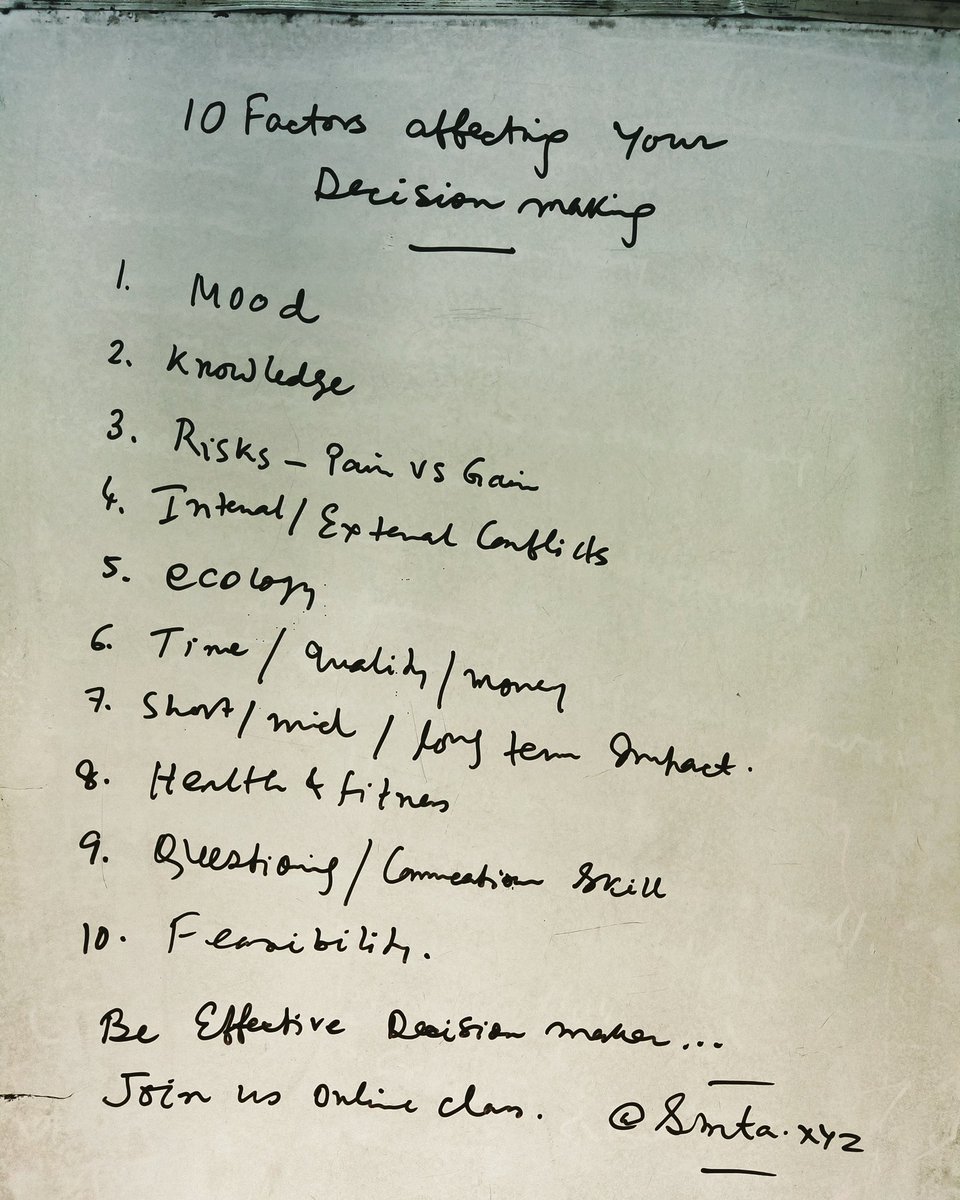 10 Factors affecting Your
Decision making
1. Mood
2. Knowledge
3. Risks - Pain vs Gain
4. Internal / External Conflicts
5. ecology
6. Time / Quality / money
7. Short / mid / long term Impact.
8. Health & fitness
9. Questioning / Commcation Skill
10. Feasibility.
Be Effective Decision maker...
Join us online class. @Smta.xyz